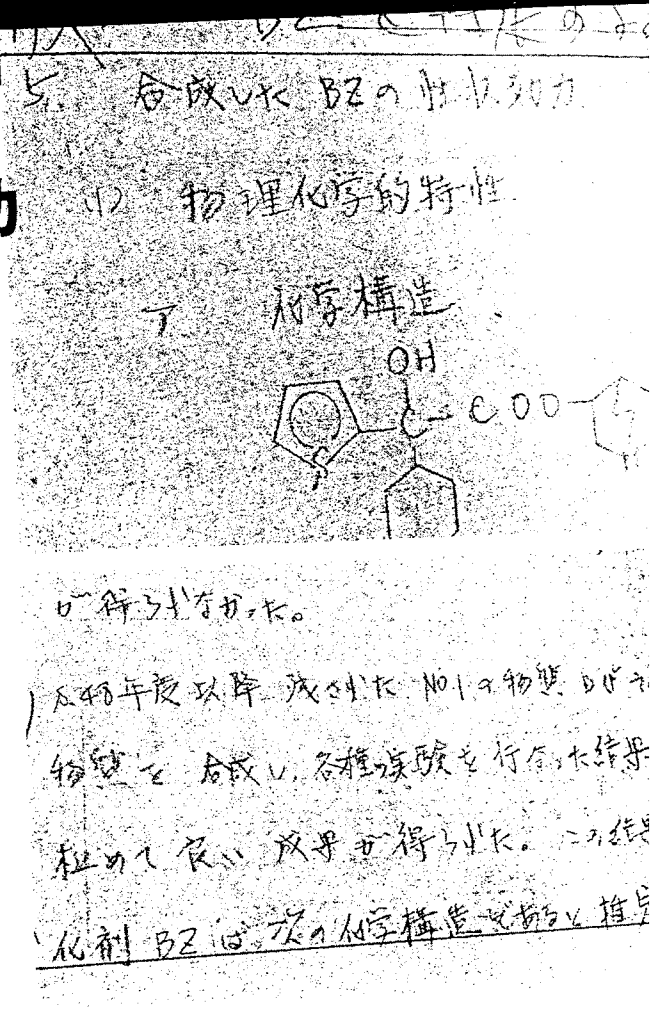 5. 合成した BZの性状効力
(1) 物理化学的特性
ア 化学構造
OH
C - COO
S
が得られなかった。
48年度以降 残された NO1の物質
物質を 合成し、各種実験を行なった結果
極めて良い成果が得られた。この結果
化剤 BZは次の化学構造であると推定